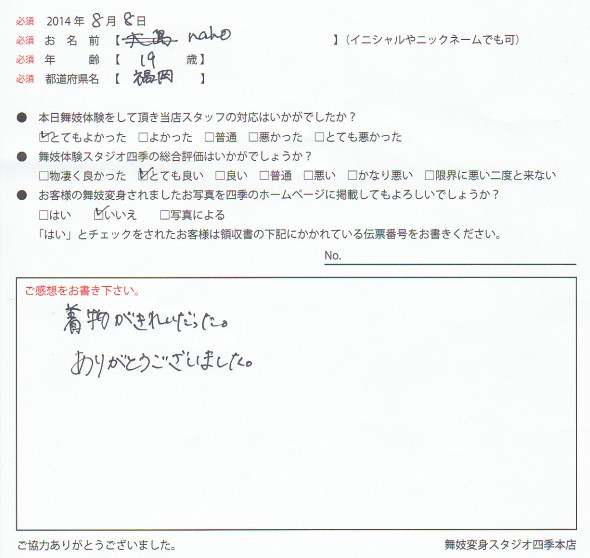 必須 2014 年 8 月 8 日
必須 お 名 前 【 naho 】（イニシャルやニックネームでも可）
必須 年 齢 【 19 歳】
必須 都道府県名 【 福岡 】
● 本日舞妓体験をして頂き当店スタッフの対応はいかがでしたか？
☑とてもよかった □よかった □普通 □悪かった □とても悪かった
● 舞妓体験スタジオ四季の総合評価はいかがでしょうか？
□物凄く良かった ☑とても良い □良い □普通 □悪い □かなり悪い □限界に悪い二度と来ない
● お客様の舞妓変身されましたお写真を四季のホームページに掲載してもよろしいでしょうか？
□はい ☑いいえ □写真による
「はい」とチェックをされたお客様は領収書の下記にかかれている伝票番号をお書きください。
No.
ご感想をお書き下さい。
着物がきれいだった。
ありがとうございました。
ご協力ありがとうございました。
舞妓変身スタジオ四季本店